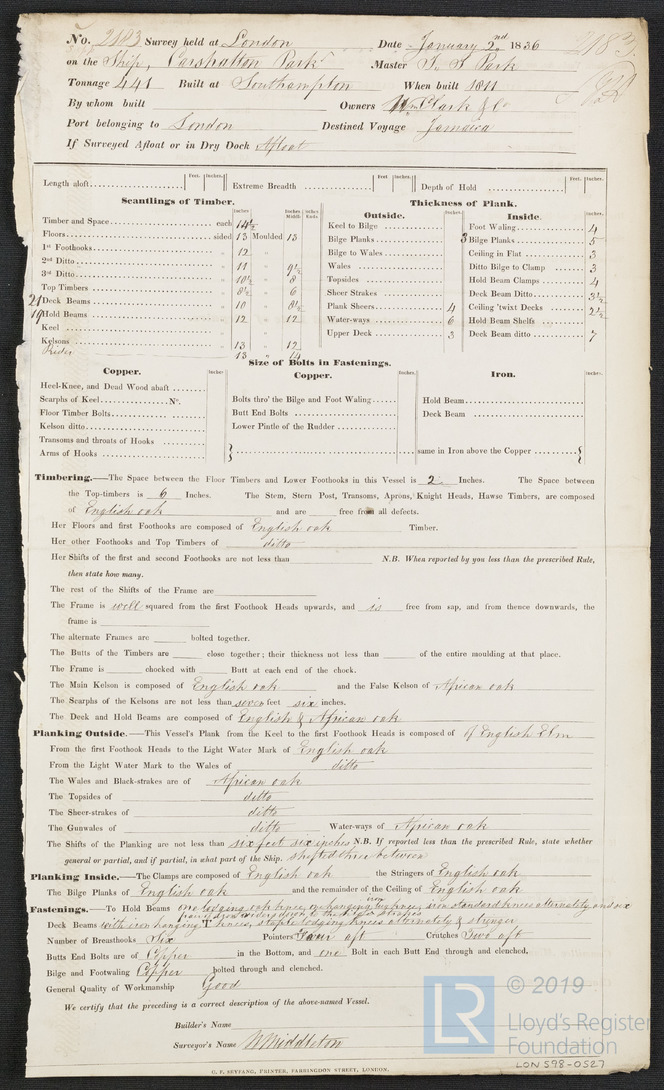 No. 2183 Survey held at London Date January 2nd 1836 2183
on the Ship, Carshalton Park Master T. S. Park
Tonnage 441 Built at Southampton When built 1811
By whom built Owners Wm Clark & Co
Port belonging to London Destined Voyage Jamaica
If Surveyed Afloat or in Dry Dock Afloat
Length aloft Feet. Inches. Extreme Breadth Feet. Inches. Depth of Hold Feet. Inches.
Scantlings of Timber.
Inches Inches Middle Inches Ends
Timber and Space each 14½
Floors sided 13 Moulded 13
1st Foothooks " 12 "
2nd Ditto " 11 " 9½
3rd Ditto " 10½ " 8
Top Timbers " 8½ " 6
21 Deck Beams " 10 " 8½
19 Hold Beams " 12 " 12
Keel " "
Kelsons " 13 " 12
Rider 13 " 14
Thickness of Plank.
Outside.
Inches
Keel to Bilge
Bilge Planks
Bilge to Wales
Wales
Topsides
Sheer Strakes
Plank Sheers 4
Water-ways 6
Upper Deck 3
Inside.
Inches
Foot Waling 4
3 Bilge Planks 5
Ceiling in Flat 3
Ditto Bilge to Clamp 3
Hold Beam Clamps 4
Deck Beam Ditto 3½
Ceiling 'twixt Decks 2½
Hold Beam Shelfs
Deck Beam ditto 7
Size of Bolts in Fastenings.
Copper. Inches
Heel-Knee, and Dead Wood abaft
Scarphs of Keel No.
Floor Timber Bolts
Kelson ditto
Transoms and throats of Hooks
Arms of Hooks
Copper. Inches
Bolts thro' the Bilge and Foot Waling
Butt End Bolts
Lower Pintle of the Rudder
Iron. Inches
Hold Beam
Deck Beam
same in Iron above the Copper
Timbering.—The Space between the Floor Timbers and Lower Foothooks in this Vessel is 2 Inches. The Space between
the Top-timbers is 6 Inches. The Stem, Stern Post, Transoms, Aprons, Knight Heads, Hawse Timbers, are composed
of English oak and are free from all defects.
Her Floors and first Foothooks are composed of English oak Timber.
Her other Foothooks and Top Timbers of ditto
Her Shifts of the first and second Foothooks are not less than N.B. When reported by you less than the prescribed Rule,
then state how many.
The rest of the Shifts of the Frame are
The Frame is well squared from the first Foothook Heads upwards, and is free from sap, and from thence downwards, the
frame is
The alternate Frames are bolted together.
The Butts of the Timbers are close together; their thickness not less than of the entire moulding at that place.
The Frame is chocked with Butt at each end of the chock.
The Main Kelson is composed of English oak and the False Kelson of African oak
The Scarphs of the Kelsons are not less than seven feet six inches.
The Deck and Hold Beams are composed of English & African oak
Planking Outside.—This Vessel's Plank from the Keel to the first Foothook Heads is composed of of English Elm
From the first Foothook Heads to the Light Water Mark of English oak
From the Light Water Mark to the Wales of ditto
The Wales and Black-strakes are of African oak
The Topsides of ditto
The Sheer-strakes of ditto
The Gunwales of ditto Water-ways of African oak
The Shifts of the Planking are not less than six feet six inches N.B. If reported less than the prescribed Rule, state whether
general or partial, and if partial, in what part of the Ship. shifted three between
Planking Inside.—The Clamps are composed of English oak the Stringers of English oak
The Bilge Planks of English oak and the remainder of the Ceiling of English oak
Fastenings.—To Hold Beams one lodging oak knee, iron hanging knees, iron standard knees alternately and six
Deck Beams with iron hanging T knees, staple lodging knees alternately & stringer
Number of Breasthooks Six Pointers Four aft Crutches Two aft
Butts End Bolts are of Copper in the Bottom, and one Bolt in each Butt End through and clenched,
Bilge and Footwaling Copper bolted through and clenched.
General Quality of Workmanship Good
We certify that the preceding is a correct description of the above-named Vessel.
Builder's Name
Surveyor's Name W Middleton
C. F. SEYFANG, PRINTER, FARRINGDON STREET, LONDON.
LR © 2019
Lloyd's Register
Foundation
LON 598-0527